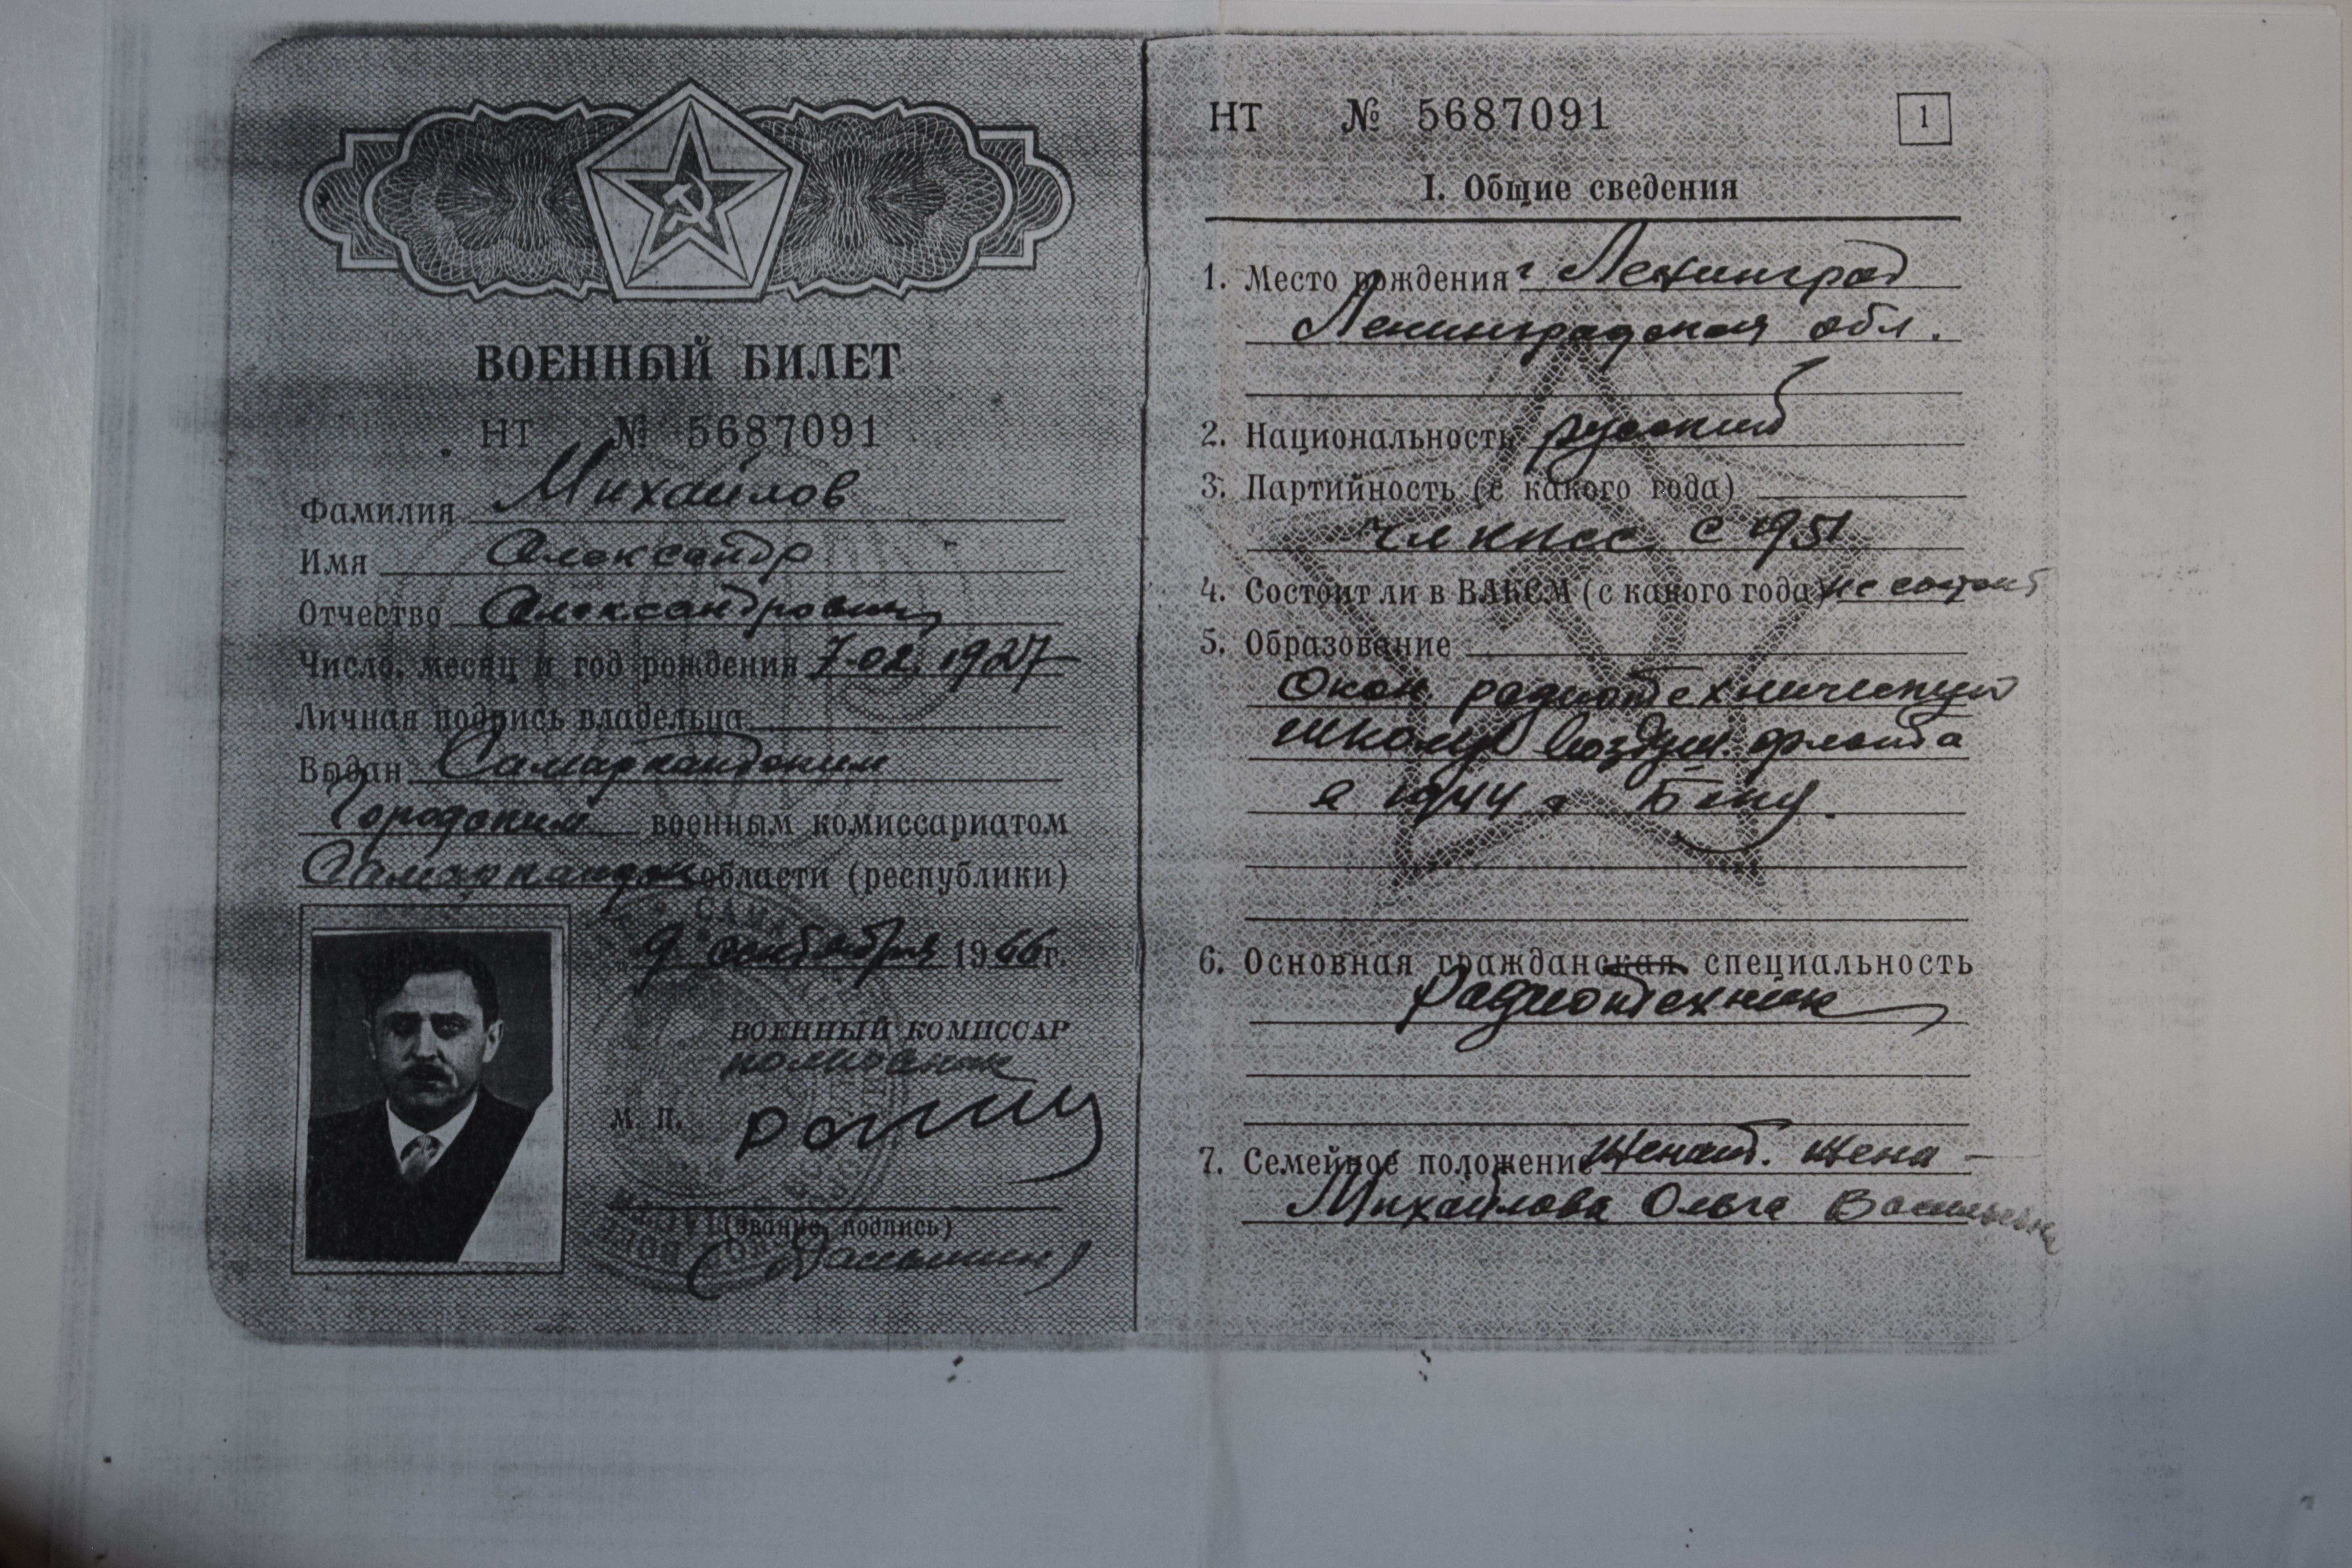 ВОЕННЫЙ БИЛЕТ
НТ № 5687091
Фамилия Михайлов
Имя Александр
Отчество Александрович
Число, месяц и год рождения 7-02. 1927
Личная подпись владельца
Выдан Самаркандским
Городским военным комиссариатом
Самаркандск области (республики)
9 сентября 1966 г.
ВОЕННЫЙ КОМИССАР
полковник
М. П.
(звание, подпись)
НТ № 5687091
1
I. Общие сведения
1. Место рождения г Ленинград
Ленинградская обл.
2. Национальность русский
3. Партийность (с какого года)
чл КПСС с 1951
4. Состоит ли в ВЛКСМ (с какого года) не состоит
5. Образование
Окон. радиотехническую
школу воздуш. флота
в 1944 г Баку.
6. Основная гражданская специальность
Радиотехник
7. Семейное положение Женат. Жена -
Михайлова Ольга Васильевна